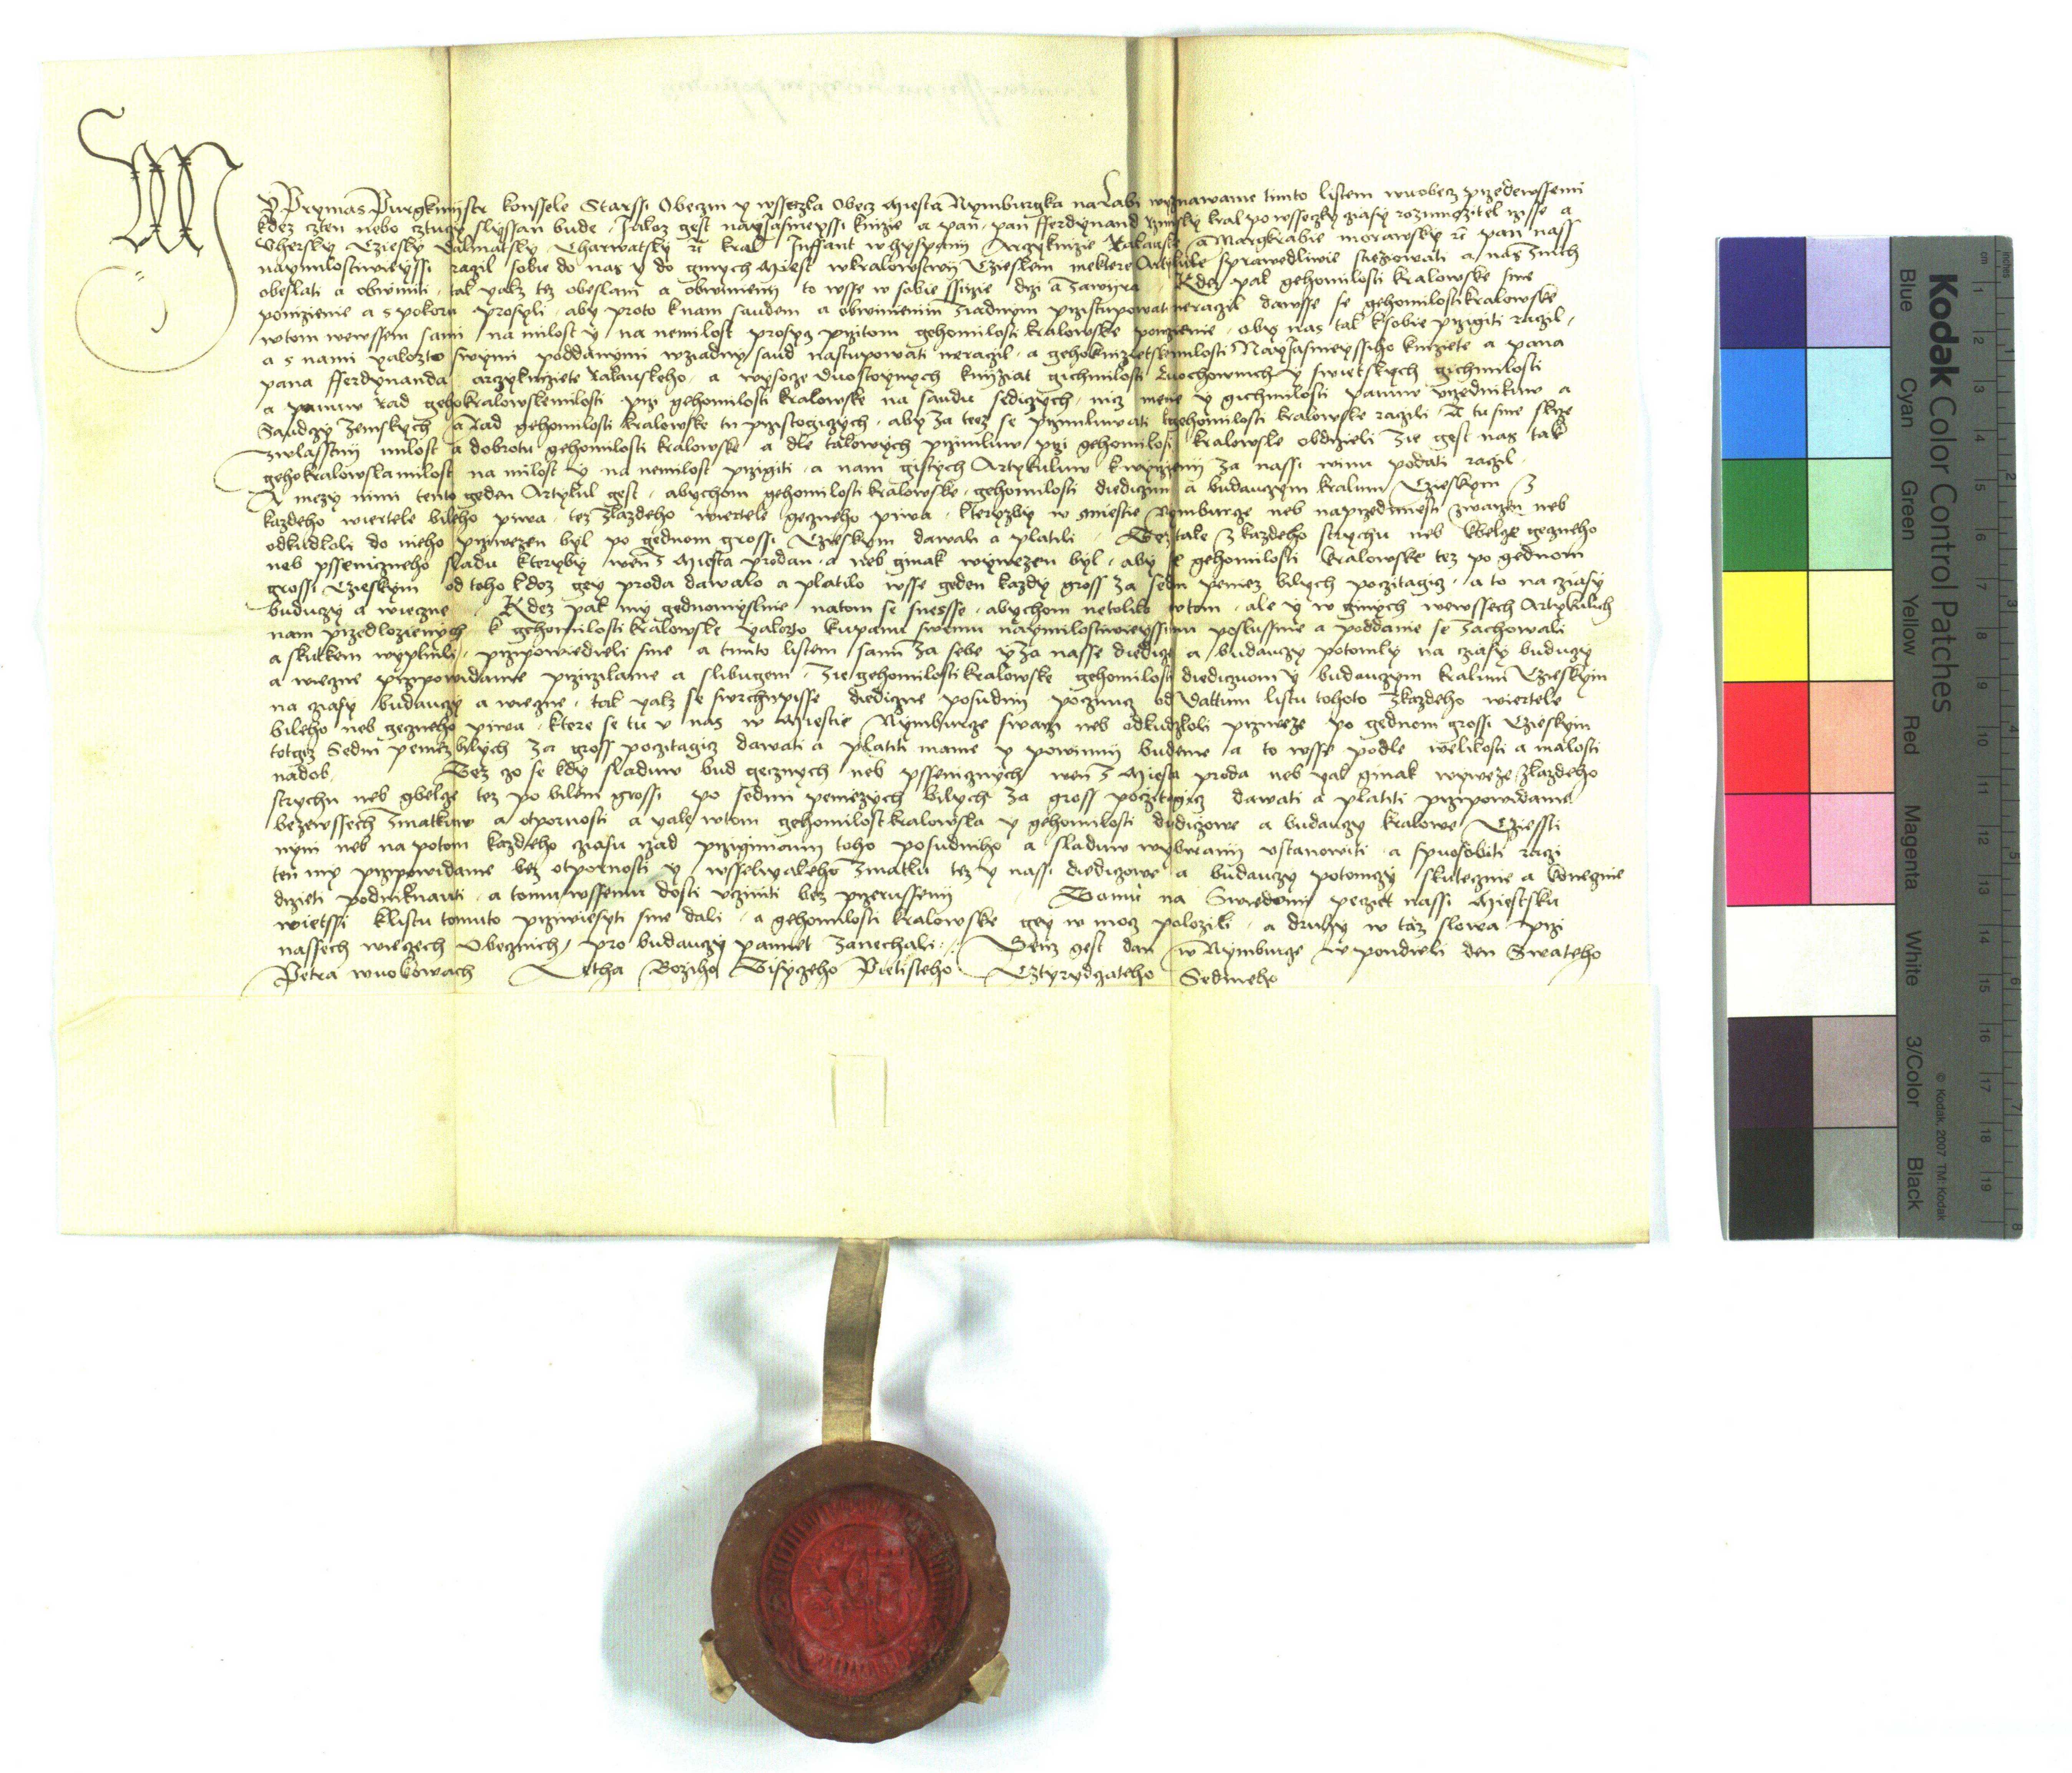 My Prymas Purgkmistr konssele Starssi Obeczni y wsseczka Obecz Miesta Nymburgka na Labi wyznawame timto listem wuobecz przedewssemi
kdez czten nebo cztucy slyssan bude. Jakoz gest nayjasneyssi knize a pan, pan fferdynand rzimsky kral po wsseczky cziasy rozmnozitel rzisse a
Vhersky Cziesky Dalmatsky Charwatsky rc kral Inffant w hyspanij Arczyknize Rakauske a Margkrabie morawsky rc pan nass
naymilostiwieyssi raczil sobie do nas y do ginych Miest wkralowstwij Czieskem niektere Artykule sprawedliwie stiezowati a nas znich
obeslati a obwiniti, tak yakz tez obeslani a obwinieni to wsse w sobie ssirze drzi a zawira. Kdez pak gehomilosti kralowske sme
ponizenie a s pokoru prosyli, aby proto k nam saudem a obwinienim ziadnym przistupowat neraczil dawsse se gehomilosti kralowske
wtom wewssem sami na milost y na nemilost prosycz przitom gehomilosti kralowske ponizenie, aby nas tak ksobie przigiti raczil,
a s nami yakozto swymi poddanymi wziadny saud nastupowati neraczil, a gehoknizietskemilosti Nayjasneyssiho knizete a pana
pana fferdynanda arczyknizete Rakauskeho, a wysocze duostoynych knijziat gichmilosti duochownich y swietskych gichmilosti
a panuw Rad gehokralowskemilosti przi gehomilosti kralowske na saudu sediczych, nicz mene y gichmilosti panuw vrzednikuw a
Saudczy zemskych a Rad gehomilosti kralowske tu przistogiczych, aby za tez se przimluwati kgehomilosti kralowske raczili. A tu sme skrze
zwlasstnij milost a dobrotu gehomilosti kralowske a dle takowych przimluw przi gehomilosti kralowske obdrzieli zie gest nas tak
gehokralowskamilost na milost y na nemilost przigiti, a nam gistych Artykuluw k wyplnenij za nassi winu podati raczil.
A mezy nimi tento geden Artykul gest, abychom gehomilosti kralowske, gehomilosti diediczum a budauczym kralum Czieskym z
kazdeho wiertele bileho piwa, tez zkazdeho wiertele geczneho piwa, kteryzby w miestie Nymburcze neb naprzedmiesti zwarzen neb
odkudkoli do nieho przywezen byl po gednom grossi Czieskym dawali a platili. Tez take z kazdeho strychu neb kbelcze geczneho
neb psseniczneho sladu kteryby wen z Miesta prodan, a neb ginak wywezen byl, aby k gehomilosti kralowske tez po gednom
grossi Czieskym od toho kdoz gey proda dawalo a platilo wsse geden kazdy gross za sedm peniez bilych pocztitagicz, a to na cziasy
buduczy a wieczne. Kdez pak my gednomyslnie natom se snessse, abychom netoliko wtom, ale y w ginych wewssech Artykulich
nam przedlozienych k gehomilosti kralowske yakozto kupanu swemu naymilostiwieyssimu poslussnie a poddanie se zachowali
a skutkem wyplnili, przipowiedieli sme a timto listem sami za sebe y za nasse diedicze a budauczy potomky na cziasy buduczy
a wieczne przipowidame przirzikame a slibugem, zie gehomilosti kralowske gehomilosti diediczuom y budauczym kralum Czieskym
na cziasy budauczy a wieczne, tak yakz se swrchupisse diediczne posudny pocznucz od dattum listu tohoto zkazdeho wiertele
bileho neb geczneho piwa, ktere se tu v nas w Miestie Nymburcze swarzi neb odkudzkoli przyweze po gednom grossi Czieskym
totgez Sedm peniez bilych za gross pocztitagicz dawati a platiti mame y powinnij budeme a to wsse podle welikosti a malosti
nadob. Tez czo se kdy sladuw bud gecznych neb psseniczných wen z Miesta proda neb yak ginak wyweze zkazdeho
strychu neb gbelcze tez po bilem grossi po sedmi peniezych bilych za gross pocztitagicz dawati a platiti przipowidame
bezewssech zmatkuw a otpornosti a yakz wtom gehomilost kralowska y gehomilosti diediczowe a budauczy kralowe Cziessti
nyni neb na potom kazdeho cziasu rzad przigimanij toho posudniho a sladuw wybiranij vstanowiti a spuosobiti raczi
ten my przipowidame bez otpornosti y wsselyakeho zmatku tez y nassi diediczowe a budauczy potomczy skuteczne a konecznie
drzieti podniknauti, a tomu wssemu dosti vcziniti bez przerussenij. Tomu na Swiedomij peczet nassi Miestsku
wietssi klistu tomuto przywiesyti sme dali, a gehomilosti kralowske gey w mocz polozili, a druhy w taz slowa przi
nassech wieczech Obecznich pro budauczy pamiet zanechali. Genz gest dan w Nymburcze w pondieli den Swateho
Petra wuokowach Letha Bozsiho Tisyczeho Pietisteho Cztyrydczateho Sedmeho
Kodak Color Control Patches
Blue Cyan Green Yellow Red Magenta White 3/Color Black
© Kodak, 2007 TM: Kodak
cm 1 2 3 4 5 6 7 8 9 10 11 12 13 14 15 16 17 18 19
inches 1 2 3 4 5 6 7 8